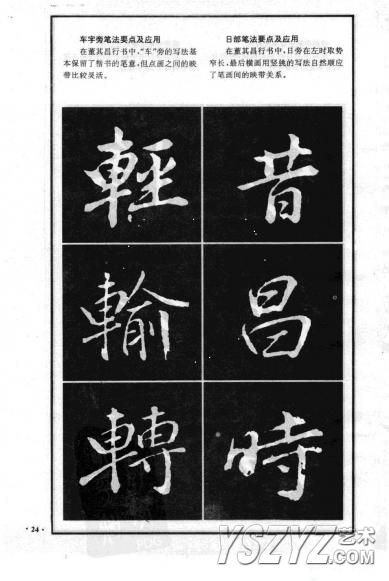 车字旁笔法要点及应用
在董其昌行书中，“车”旁的写法基
本保留了楷书的笔意，但点画之间的映
带比较灵活。
日部笔法要点及应用
在董其昌行书中，日旁在左时取势
窄长，最后横画用竖挑的写法自然顺应
了笔画间的映带关系。
輕
昔
輸
昌
轉
時
·24·
YSZYZ艺术
.COM